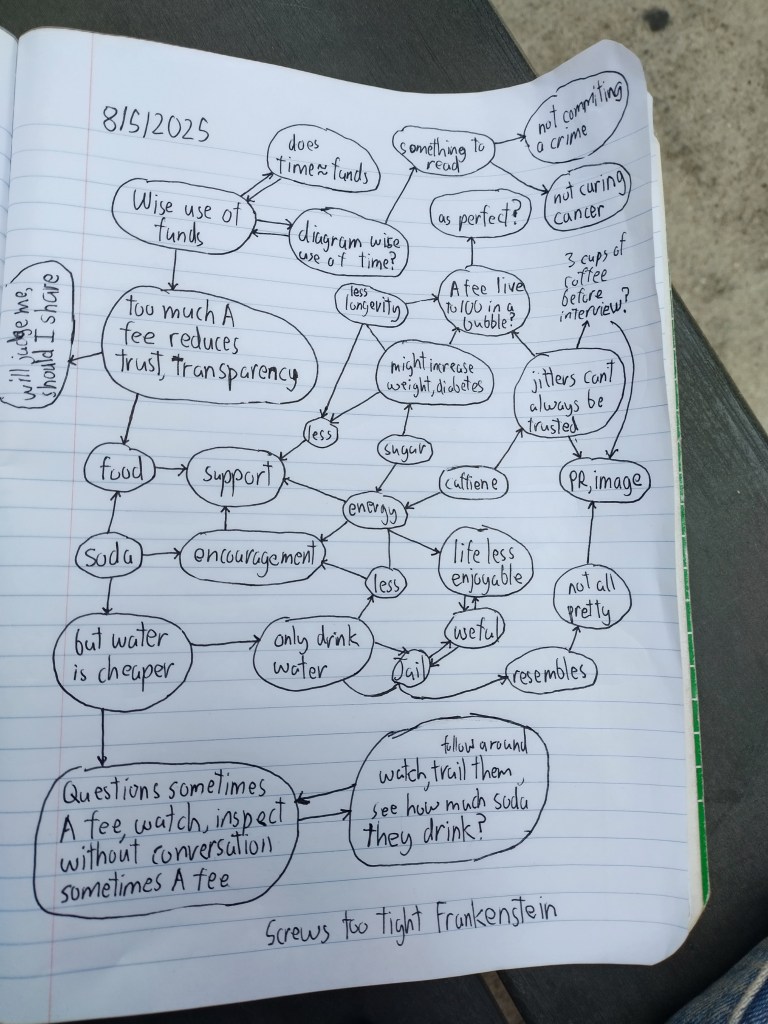 8/5/2025
does
time≈funds
something to
read
not commiting
a crime
Wise use of
funds
diagram wise
use of time?
as perfect?
not curing
cancer
3 cups of
coffee
before
interview?
will judge me,
should I share
too much A
fee reduces
trust, transparency
less
longevity
A fee live
to 100 in a
bubble?
might increase
weight, diabetes
jitters can't
always be
trusted
less
sugar
food
support
caffiene
PR, image
energy
soda
encouragement
life less
enjoyable
less
not all
pretty
but water
is cheaper
only drink
water
Jail
resembles
follow around
watch, trail them,
see how much soda
they drink?
Questions sometimes
A fee, watch, inspect
without conversation
sometimes A fee
Screws too tight Frankenstein